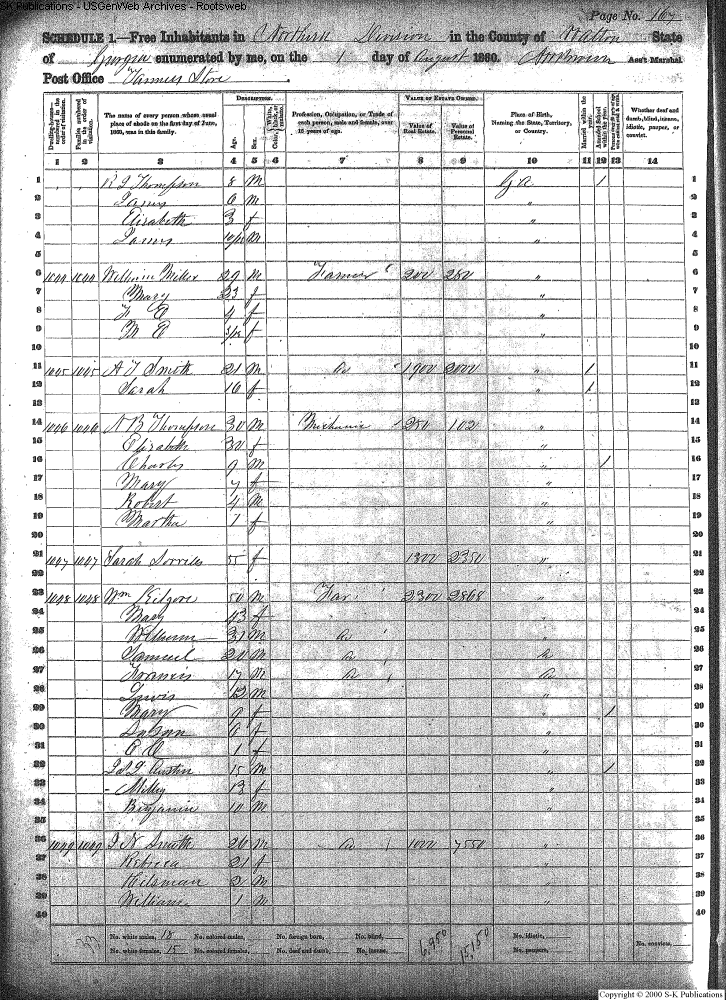 S-K Publications - USGenWeb Archives - Rootsweb
Page No. 167
SCHEDULE 1.—Free Inhabitants in Northern Division in the County of Walton State
of Georgia enumerated by me, on the 1 day of August 1860. Ass't Marshal
Post Office Farmers Store
Dwelling-houses—numbered in the order of visitation.
Families numbered in the order of visitation.
The name of every person whose usual place of abode on the first day of June, 1860, was in this family.
DESCRIPTION.
Age.
Sex.
Color, White, black, or mulatto.
Profession, Occupation, or Trade of each person, male and female, over 15 years of age.
VALUE OF ESTATE OWNED.
Value of Real Estate.
Value of Personal Estate.
Place of Birth, Naming the State, Territory, or Country.
Married within the year.
Attended School within the year.
Whether deaf and dumb, blind, insane, idiotic, pauper, or convict.
1 2 3 4 5 6 7 8 9 10 11 12 13 14
1 R J Thompson 8 M Ga 1 1
2 James 6 M " 2
3 Elizabeth 3 f " 3
4 James 10/12 M " 4
5 5
6 1044 1044 William Miller 29 M Farmer 200 250 " 6
7 Mary 23 f " 7
8 4 f " 8
9 M E 3/12 f " 9
10 10
11 1045 1045 A J Smith 21 M Do 1900 2000 " 1 11
12 Sarah 16 f " 1 12
13 13
14 1046 1046 A B Thompson 30 M Mechanic 250 102 " 14
15 Elizabeth 30 f " 15
16 Charles 9 M " 1 16
17 Mary 7 f " 17
18 Robert 4 M " 18
19 Martha 1 f " 19
20 20
21 1047 1047 Sarah Sorrells 55 f 1300 2350 " 21
22 22
23 1048 1048 Wm Kilgore 50 M Far 2300 2868 " 23
24 Mary 43 f " 24
25 William 21 M Do " 25
26 Samuel 20 M Do 26
27 Francis 17 M Do Do 27
28 Lewis 12 M " 28
29 Mary 9 f " 1 29
30 6 f " 30
31 1 f " 31
32 Austin 15 M " 1 32
33 Milly 13 f " 33
34 Benjamin 10 M " 34
35 35
36 1049 1049 J N Smith 26 M Do 1000 7550 " 36
37 Rebecca 21 f " 37
38 Hilsman 2 M " 38
39 William 1 M " 39
40 40
No. white males, 18 No. colored males, No. foreign born, No. blind, No. idiotic,
No. white females, 15 No. colored females, No. deaf and dumb, No. insane, No. paupers, No. convicts,
6,950 15,150
Copyright © 2000 S-K Publications